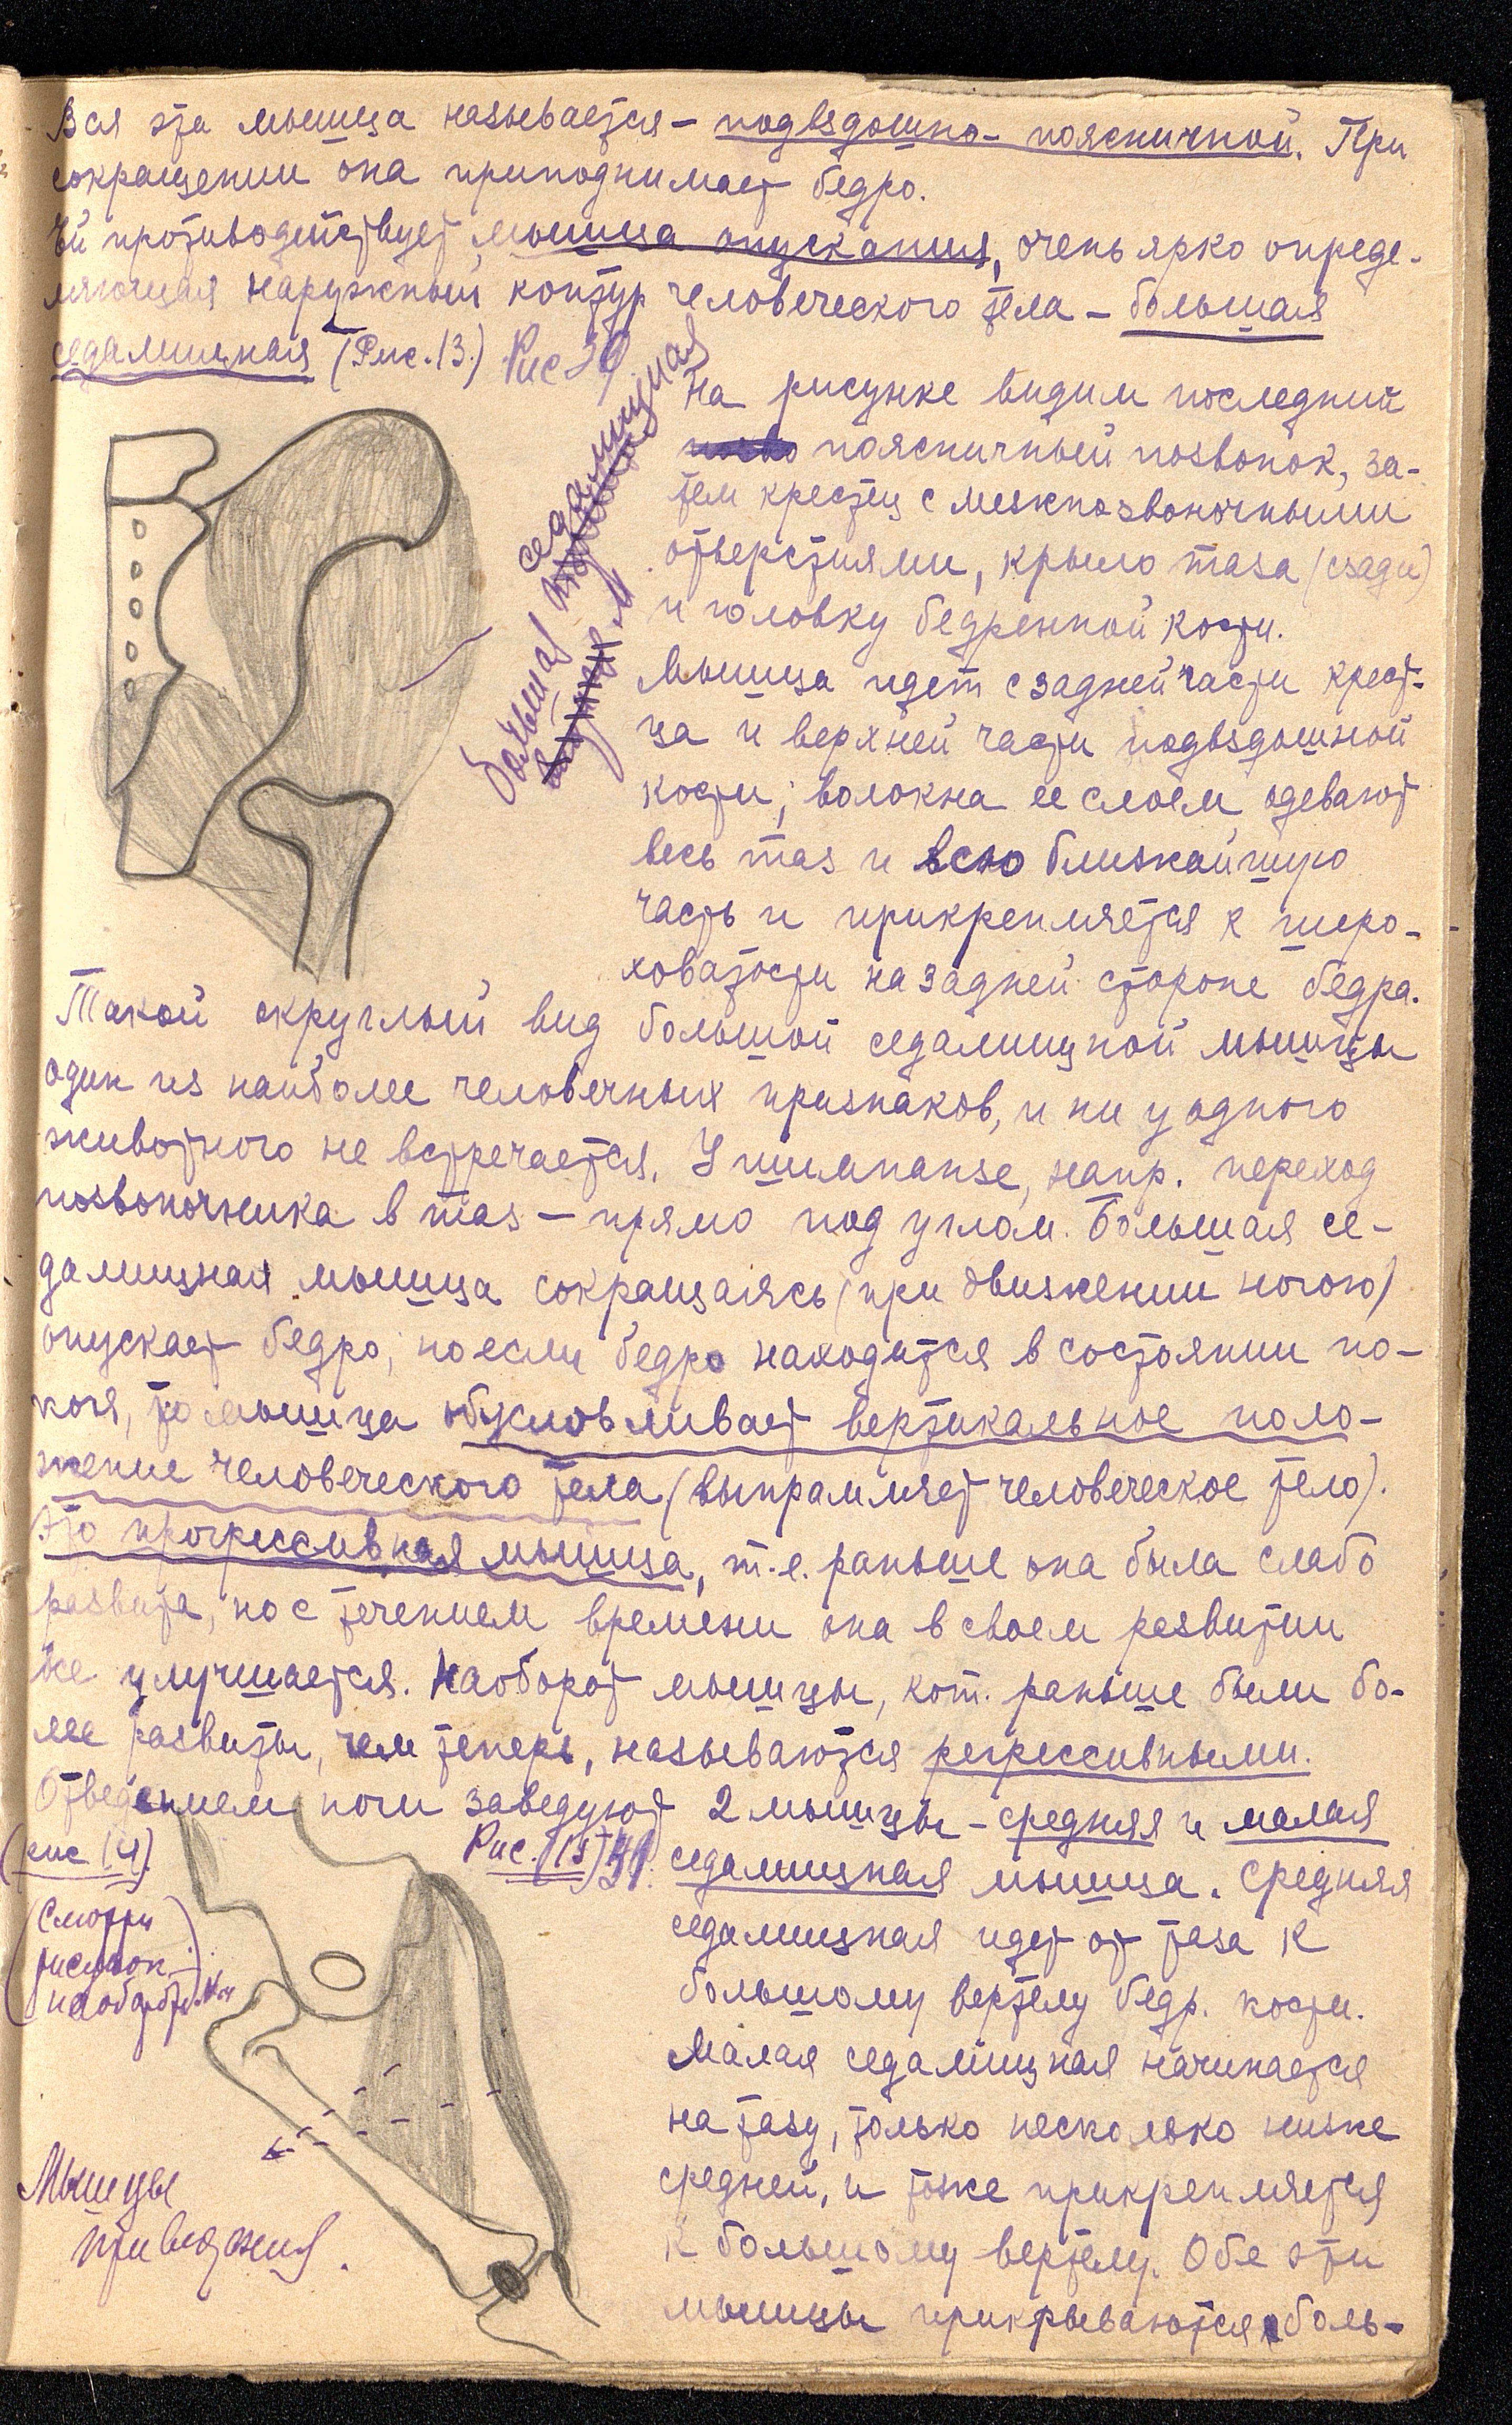 Вся эта мышца называется – подвздошно-поясничной. При
сокращении она приподнимает бедро.
Ей противодействует мышца опускания, очень ярко опреде-
ляющая наружный контур человеческого тела – большая
седалищная (Рис. 13.) Рис 39
большая седалищная
На рисунке видим последний
поясничный позвонок, за-
тем крестец с межпозвоночными
отверстиями, крыло таза (сзади)
и головку бедренной кости.
Мышца идет с задней части крест-
ца и верхней части подвздошной
кости; волокна ее слоем одевают
весь таз и всю ближайшую
часть и прикрепляется к шеро-
ховатости на задней стороне бедра.
Такой округлый вид большой седалищной мышцы
один из наиболее человечных признаков, и ни у одного
животного не встречается. У шимпанзе, напр. переход
позвоночника в таз – прямо под углом. Большая се-
далищная мышца сокращаясь (при движении ногою)
опускает бедро, но если бедро находится в состоянии по-
коя, то мышца обусловливает вертикальное поло-
жение человеческого тела (выпрямляет человеческое тело).
Это прогрессивная мышца, т.е. раньше она была слабо
развита, но с течением времени она в своем развитии
все улучшается. Наоборот мышцы, кот. раньше были бо-
лее развиты, чем теперь, называются регрессивными.
Отведением ноги заведуют 2 мышцы – средняя и малая
(рис 14). Рис. (15) седалищная мышца. Средняя
(Смотри
рисунок
на обор
седалищная идет от таза к
большому вертелу бедр. кости.
Малая седалищная начинается
на тазу, только несколько ниже
средней, и тоже прикрепляется
к большому вертелу. Обе эти
мышцы прикрываются боль-
Мышцы
приведения.